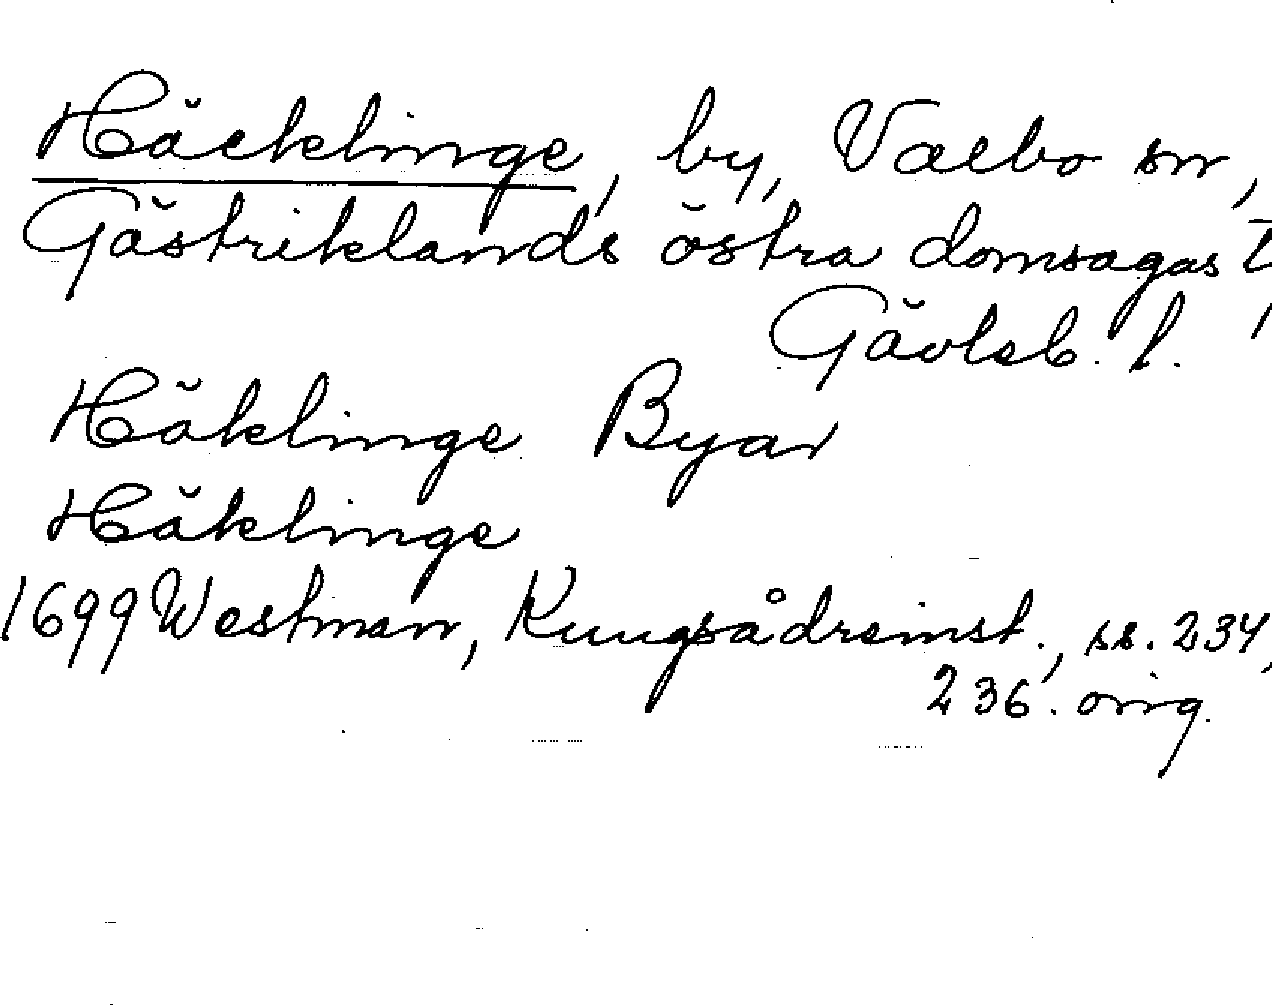 Häcklinge, by, Valbo sn,
Gästriklands östra domsagas t,
Gävleb. l.
Häklinge Byar
Häklinge
1699 Westman, Kungsådreinst., ss. 234,
236. orig.